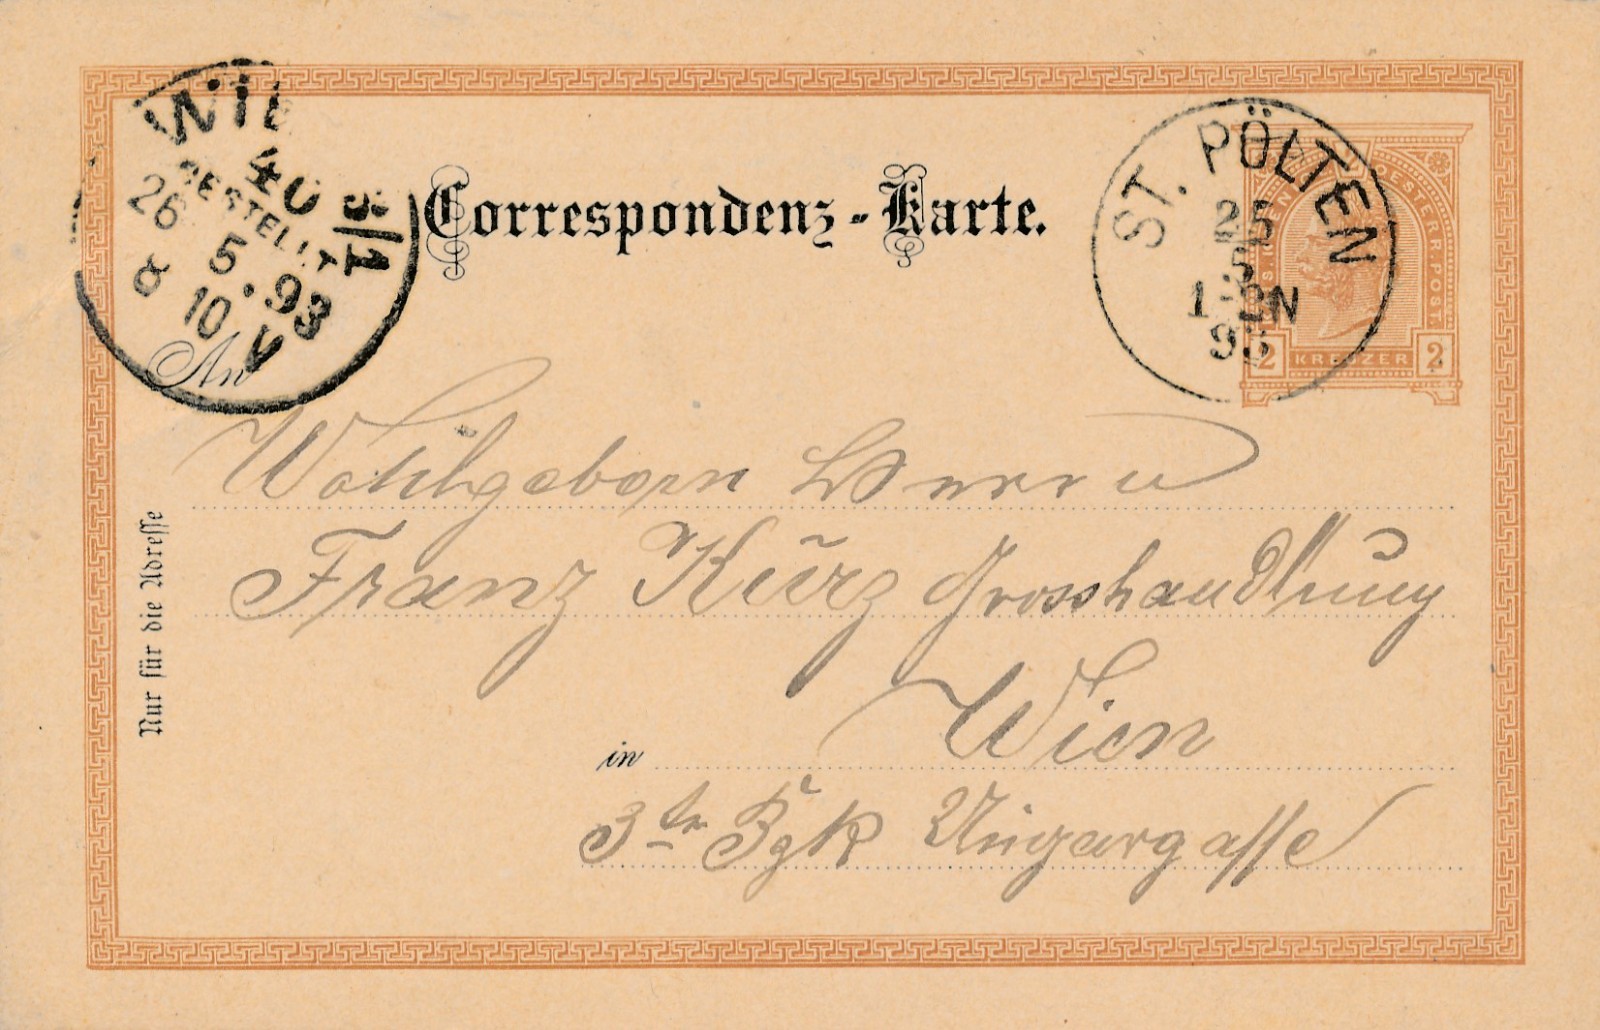 WIE
3/1
40
BESTELLT
26 5.93
8 10 V
Correspondenz-Karte.
ST. PÖLTEN
25
5
93
OESTERR. POST.
2 KREUZER 2
An
Wohlgeborn Herrn
Franz Kurz Grosshandlung
in Wien
3ter Bzk Ungargasse
Nur für die Adresse